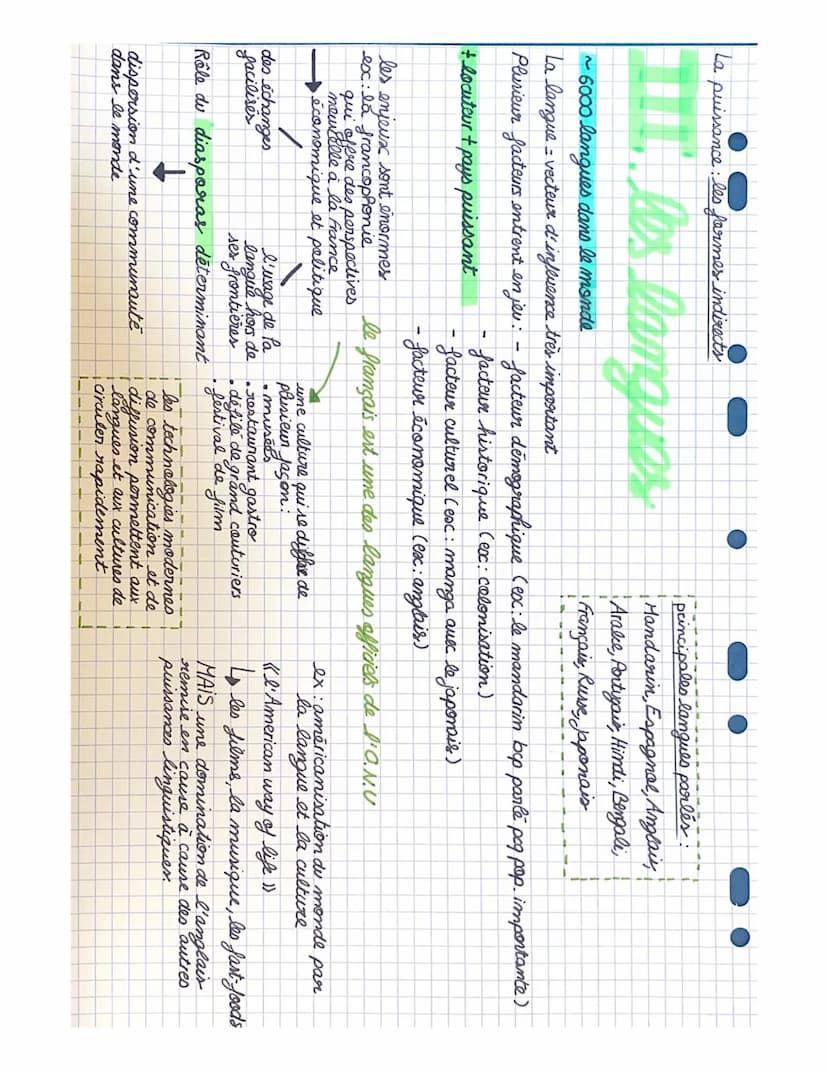 La puissance : les formes indirects
III. les langues
principales langues parlés :
Mandarin, Espagnol, Anglais,
Arabe, Portugais, Hindi, Bengali,
Français, Russe, Japonais
~ 6000 langues dans le monde
La langue = vecteur d'influence très important
Plusieur facteurs entrent en jeu : - facteur démographique (ex : le mandarim bcp parlé pq pop. importante)
- facteur historique (ex : colonisation)
- facteur culturel (ex : manga avec le japonais)
- facteur économique (ex : anglais)
+ locuteur + pays puissant
le français est une des langues officiels de l'O.N.U
les enjeux sont énormes
ex : la francophonie
qui offre des perspectives
nouvelle à la France
→ économique et politique
des échanges
facilisés
l'usage de la
langue hors de
ses frontières
Rôle du diasporas déterminant
dispersion d'une communauté
dans le monde
une culture qui se diffuse de
plusieur façon :
• musées
• restaurant gastro
• défilé de grand couturiers
• féstival de film
les technologies modernes
de communication et de
diffusion permettent aux
langues et aux cultures de
circuler rapidement
ex : américanisation du monde par
la langue et la culture
« l'American way of life »
↳ les films, la musique, les fast-foods
MAIS une domination de l'anglais
remise en cause à cause des autres
puissances linguistiques.